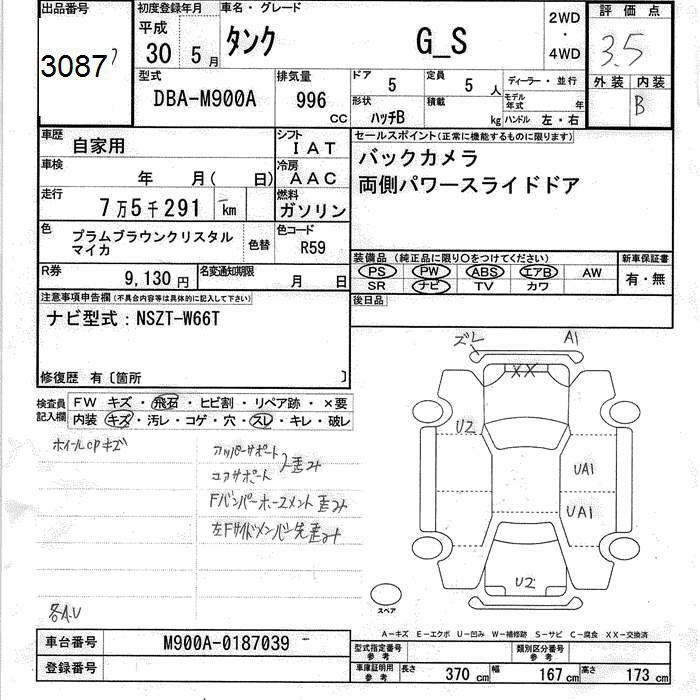 出品番号 初度登録年月 車名・グレード 2WD・4WD 評価点
3087 平成 30 5月 タンク G_S 3.5
型式 排気量 ドア 5 定員 5人 ディーラー・並行 外装 内装
DBA-M900A 996 cc 形状 ハッチB 積載 kg モデル年式 年 ハンドル 左・右 B
車歴 自家用 シフト IAT セールスポイント(正常に機能するものに限ります)
車検 年 月( 日) 冷房 AAC バックカメラ
走行 7万5千291 km 燃料 ガソリン 両側パワースライドドア
色 プラムブラウンクリスタル 色替 色コード R59
マイカ
装備品 (純正品に限り○をつけてください) 新車保証書
PS PW ABS エアB AW 有・無
SR ナビ TV カワ
R券 9,130円 名変通知期限 月 日
後日品
注意事項申告欄(不具合内容等は具体的に記入して下さい)
ナビ型式:NSZT-W66T
修復歴 有〔箇所 〕
検査員記入欄 FW キズ・飛石・ヒビ割・リペア跡・×要
内装 キズ・汚レ・コゲ・穴・スレ・キレ・破レ
ホイールCPキズ
アッパーサポート
コアサポート 歪み
Fバンパーホースメント歪み
左Fサイドメンバー先歪み
各A.U
ズレ A1
XX
U2
UA1
UA1
U2
スペア
A-キズ E-エクボ U-凹み W-補修跡 S-サビ C-腐食 XX-交換済
車台番号 M900A-0187039
登録番号
型式指定番号 参考 類別区分番号 参考
車庫証明用 参考 長さ 370cm 幅 167cm 高さ 173cm